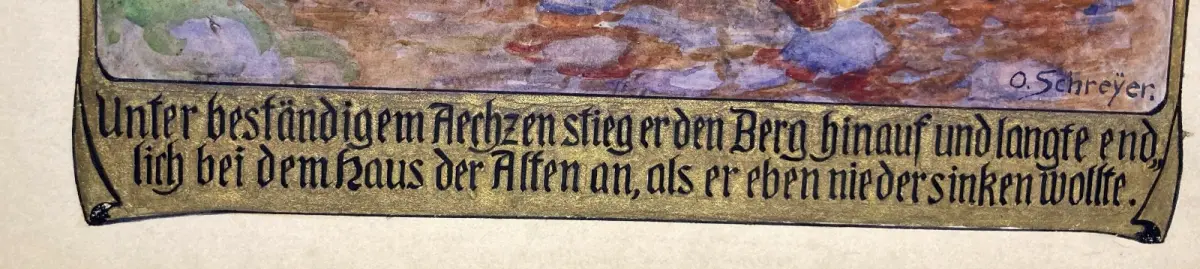 O. Schreÿer.
Unter beständigem Aechzen stieg er den Berg hinauf und langte end„
lich bei dem Haus der Alten an, als er eben niedersinken wollte.